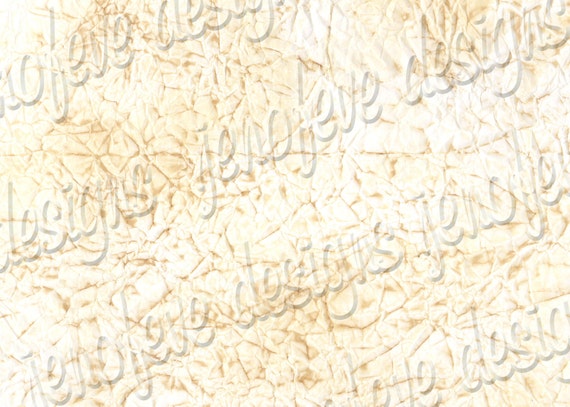 jenofeve designs
jenofeve designs
designs jenofeve
jenofeve designs